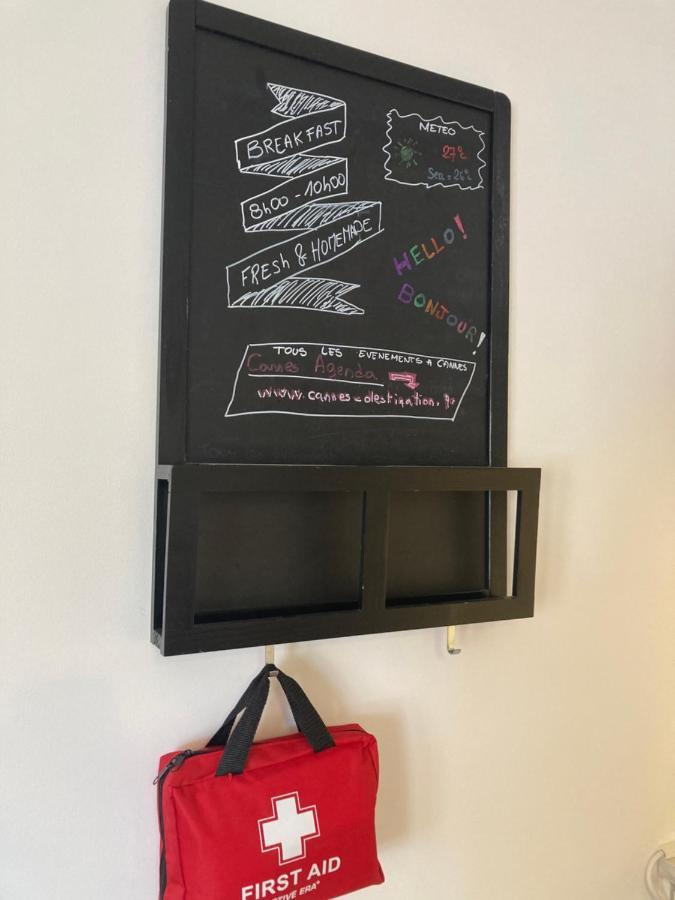 BREAKFAST
8h00 - 10h00
FRESH & HOMEMADE
METEO
27°c
Sea = 26°c
HELLO!
BONJOUR!
TOUS LES EVENEMENTS A CANNES
Cannes Agenda
www.cannes-destination.fr
FIRST AID